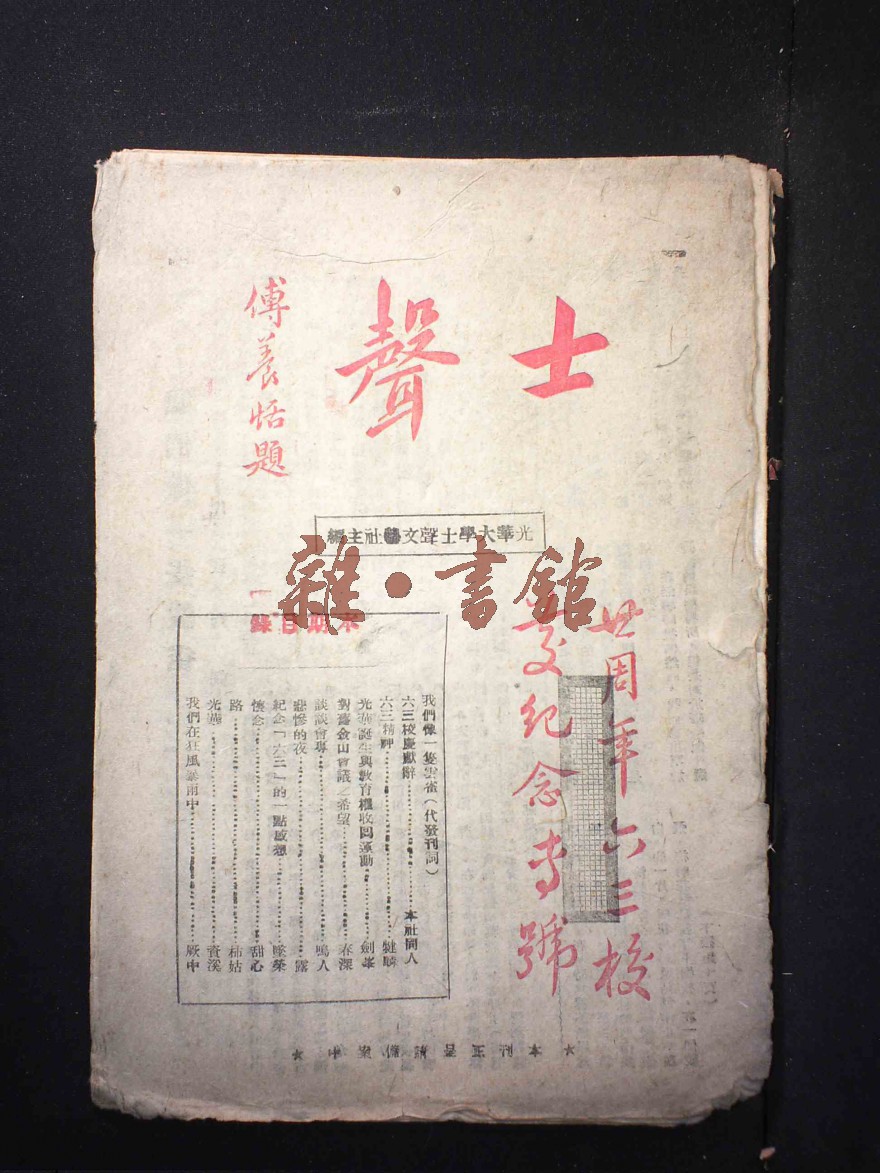 士聲
傅養恬題
光華大學士聲文藝社主編
廿周年六三校
慶紀念專號
本期目錄
我們像一隻雲雀(代發刊詞)
六三校慶獻辭………本社同人
六三精神………
光華誕生與教育權收回運動………劍峯
對舊金山會議之希望………春深
談談會專………鳴人
悲慘的夜………露
紀念「六三」的一點感想………墜榮
懷念………甜心
路………柿姑
光華………資溪
我們在狂風暴雨中………厥中
★本社正呈請備案中★
雜·書館